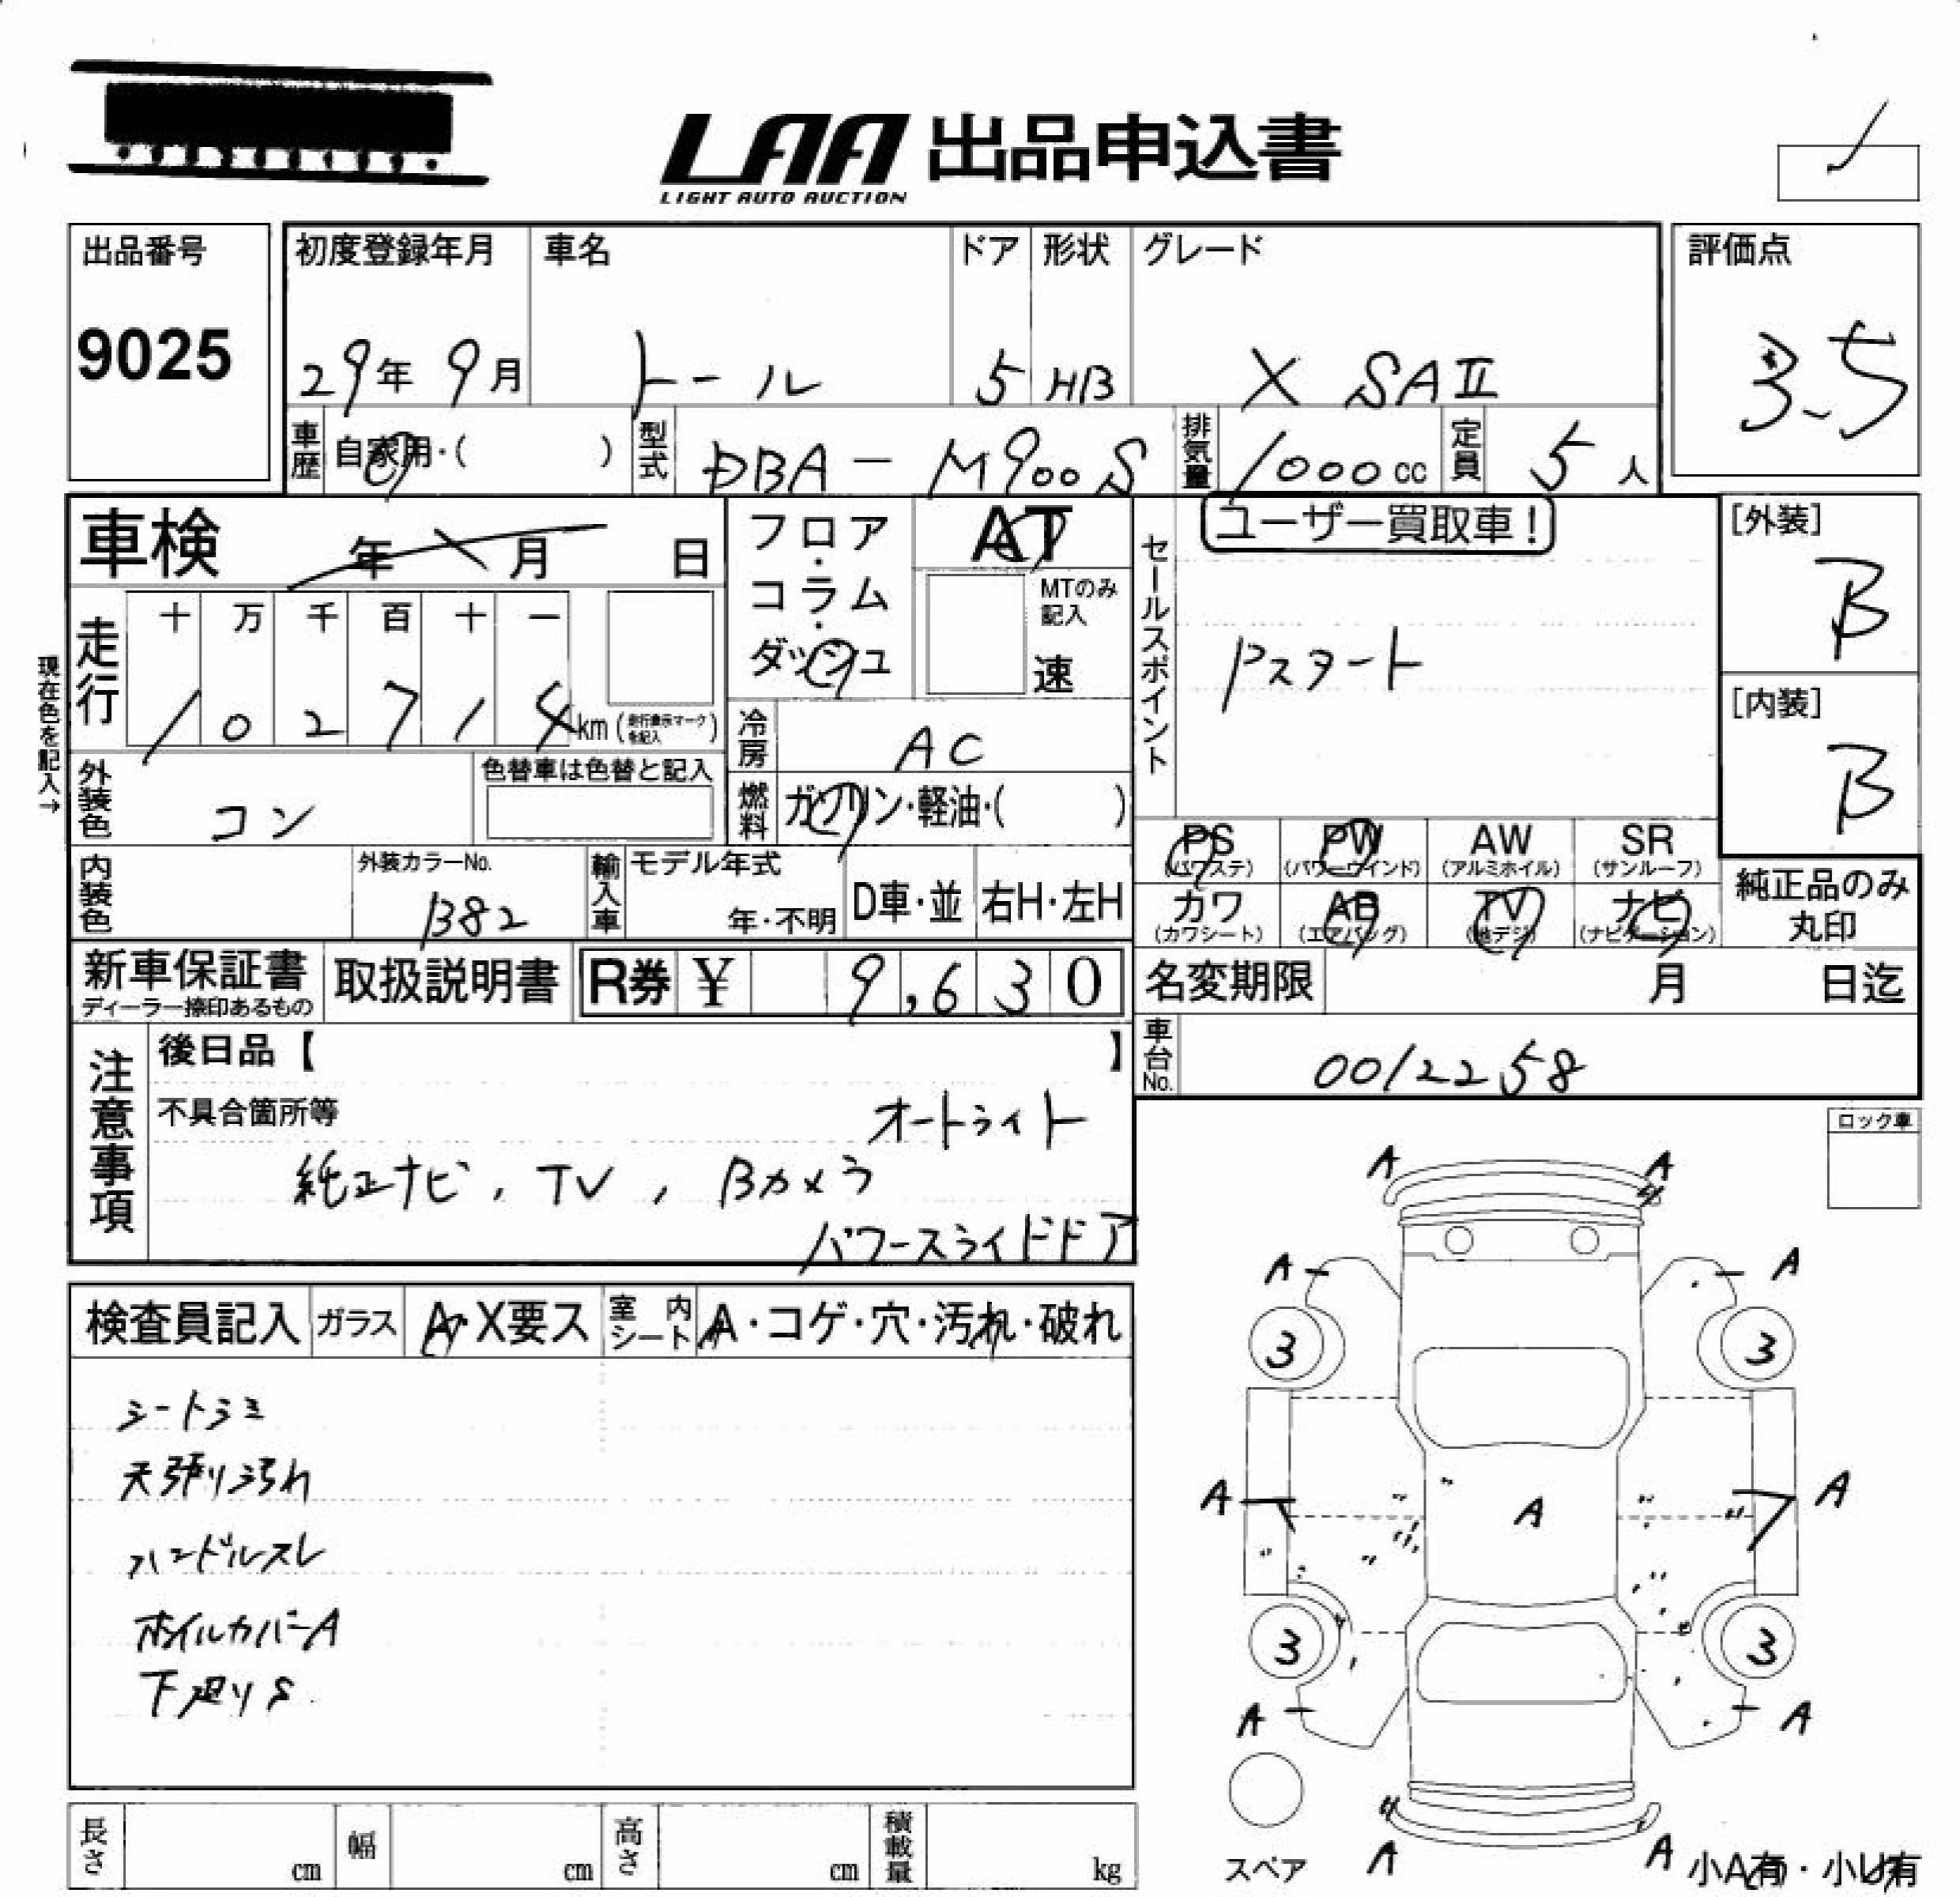 LAA 出品申込書
LIGHT AUTO AUCTION
出品番号
9025
初度登録年月 車名 ドア 形状 グレード
29年 9月 トール 5 HB X SAⅡ
評価点
3.5
車歴 自家用・( ) 型式 DBA-M900S 排気量 1000cc 定員 5人
車検 年 月 日
フロア・コラム・ダッシュ
AT
MTのみ記入
速
セールスポイント
ユーザー買取車!
Pスタート
[外装]
B
[内装]
B
現在色を記入→
走行 十 万 千 百 十 一
1 0 2 7 1 4 km (走行表示マークを記入)
冷房 AC
燃料 ガソリン・軽油・( )
外装色 コン
色替車は色替と記入
PS (パワステ) PW (パワーウインド) AW (アルミホイル) SR (サンルーフ)
カワ (カワシート) AB (エアバッグ) TV (地デジ) ナビ (ナビゲーション)
純正品のみ丸印
内装色
外装カラーNo.
B82
輸入車 モデル年式
年・不明
D車・並 右H・左H
新車保証書
ディーラー捺印あるもの
取扱説明書
R券 ¥ 9,630
名変期限 月 日迄
車台No. 0012258
注意事項
後日品【 】
不具合箇所等
オートライト
純正ナビ, TV, Bカメラ
パワースライドドア
ロック車
検査員記入 ガラス A・X要ス 室内シート A・コゲ・穴・汚れ・破れ
シートシミ
天張り汚れ
ハンドルスレ
ホイルカバーA
下廻りS
A A
A A
3 3
A A A
3 3
A A
スペア
A A
小A有・小U有
長さ cm 幅 cm 高さ cm 積載量 kg